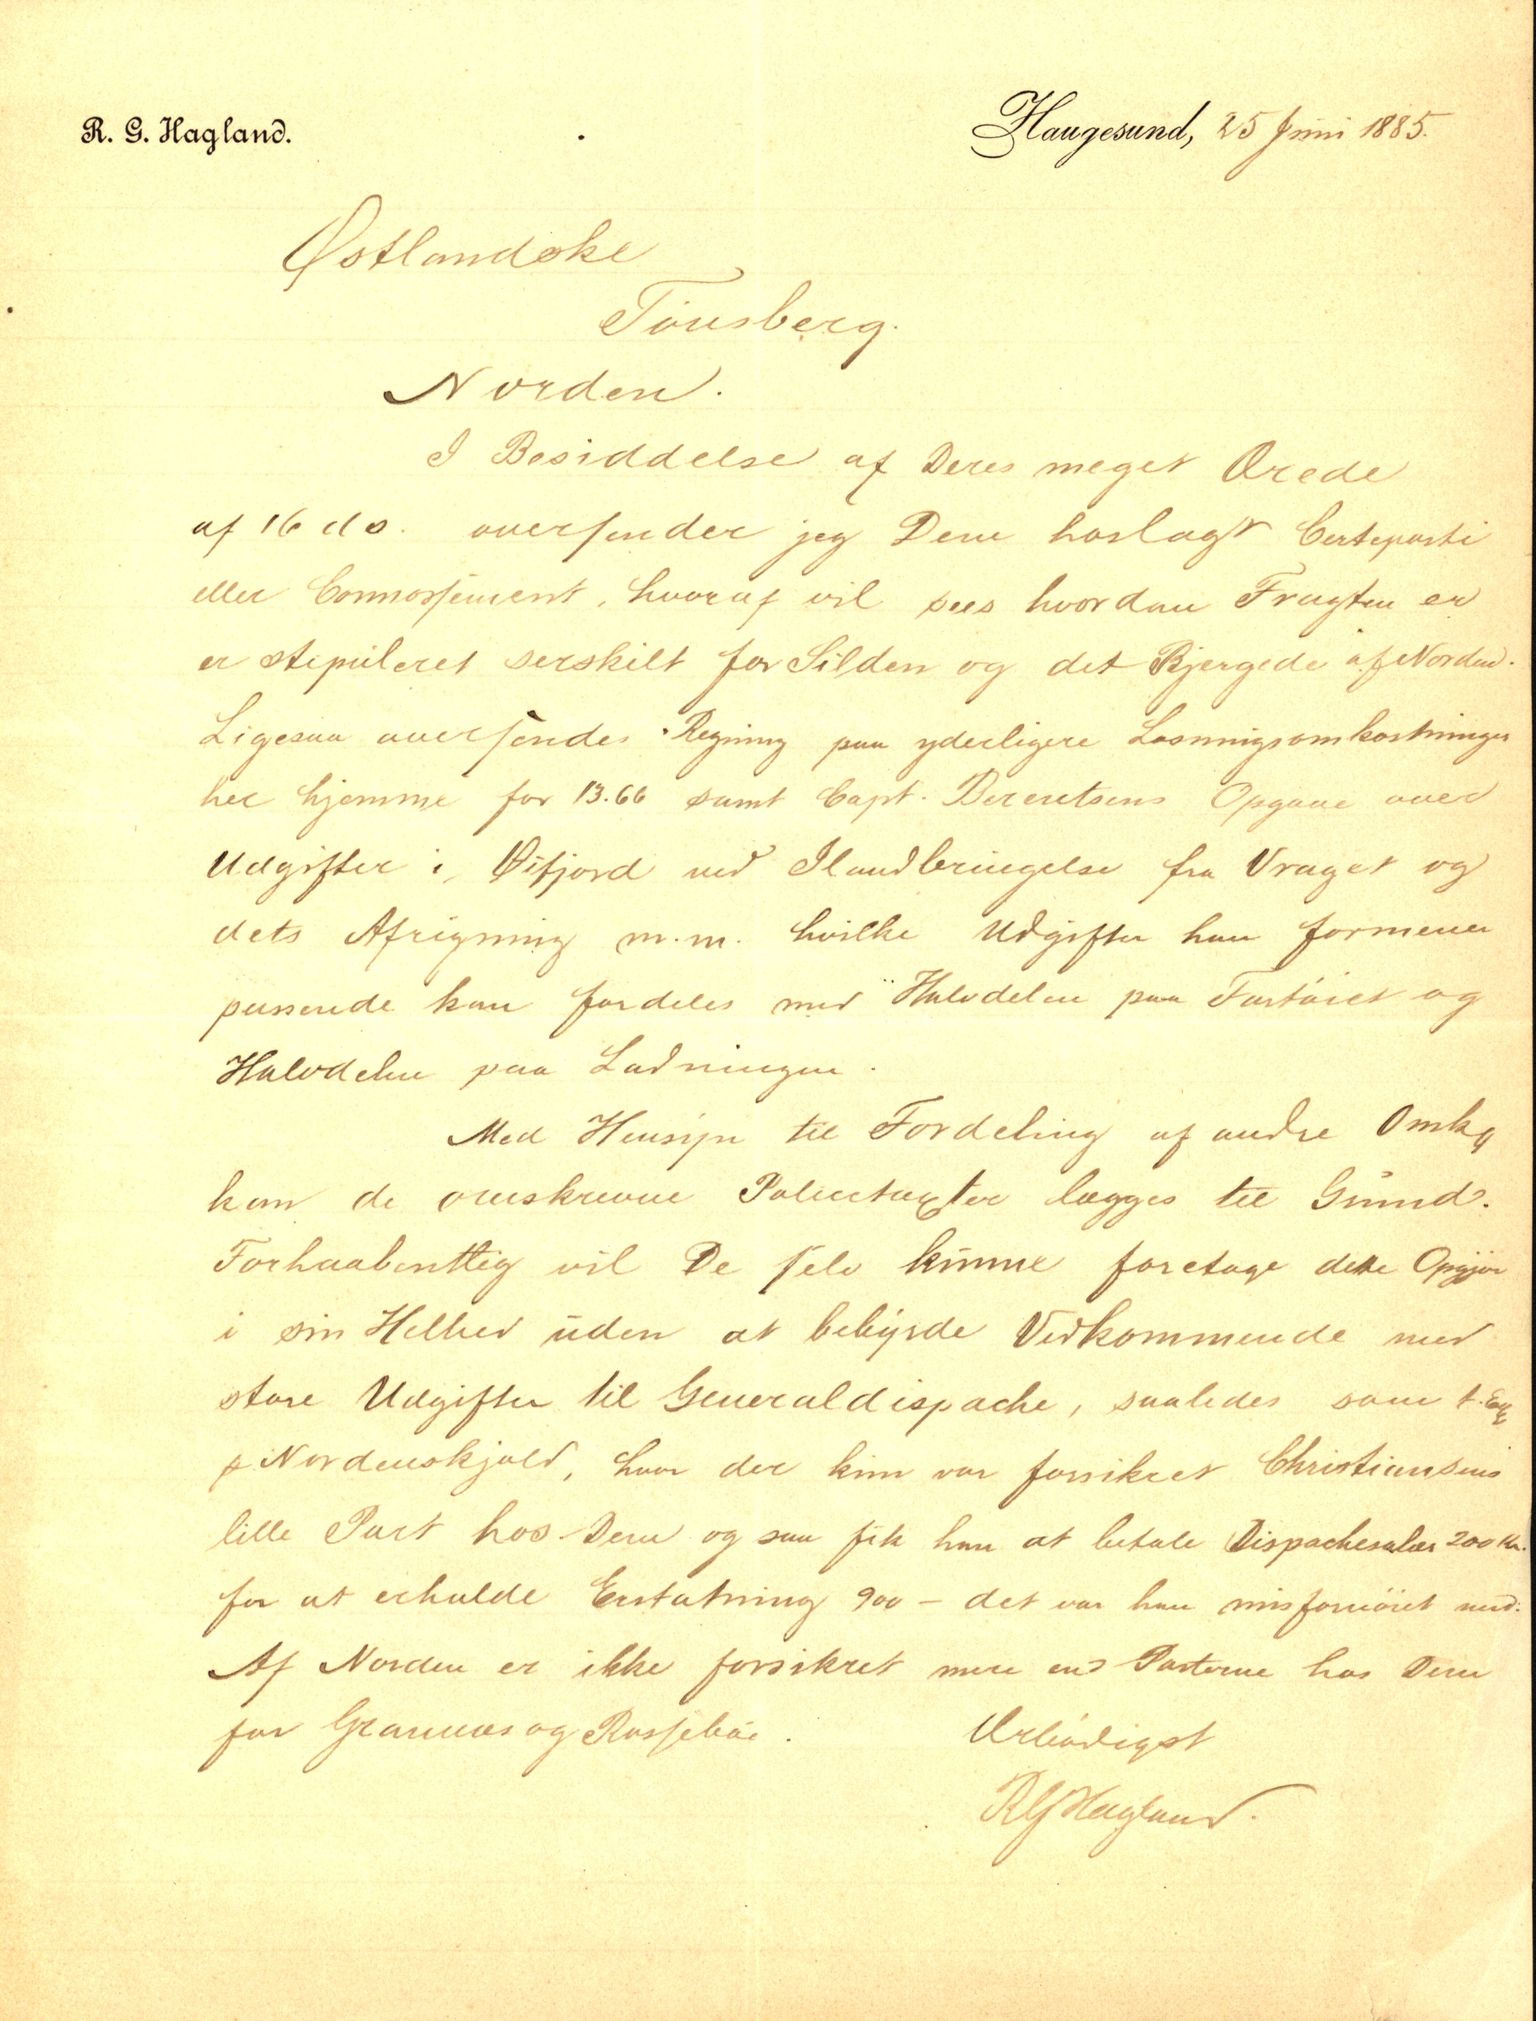 R. G. Hagland.
Haugesund, 25 Juni 1885.
Østlandske
Tønsberg.
Norden.
I Besiddelse af Deres meget Ærede
af 16 ds. oversender jeg Dem hoslagt Certeparti
eller Connossement, hvoraf vil sees hvordan Fragten er
er stipuleret serskilt for Silden og det Bjergede af Norden.
Ligesaa oversendes Regning paa yderligere Losningsomkostninger
her hjemme for 13.66 samt Capt. Berentsens Opgave over
Udgifter i Øifjord ved Ilandbringelse fra Vraget og
dets Afrigning m.m. hvilke Udgifter han formener
passende kan fordeles med Halvdelen paa Fartøiet og
Halvdelen paa Ladningen.
Med Hensyn til Fordeling af andre Omkg
kan de omskrevne Policetaxter lægges til Grund.
Forhaabentlig vil De selv kunne foretage dette Opgjør
i sin Helhed uden at bebyrde Vedkommende med
store Udgifter til Generaldispache, saaledes som t. Ex
p Nordenskjold, hvor der kun var forsikret Christiansens
lille Part hos Dem og saa fik han at betale Dispachesalær 200 Kr.
for at erholde Erstatning 900 – det var han misfornøiet med.
Af Norden er ikke forsikret mere end Parterne hos Dem
for Grannes og Rossebø.
Ærbødigst
RGHagland.